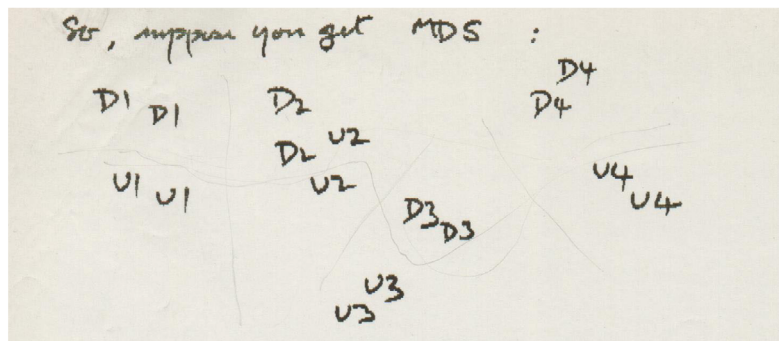 So, suppose you get MDS :
D4
D1 D1 D2 D4
D2 U2
U1 U1 U2 U4 U4
D3 D3
U3
U3